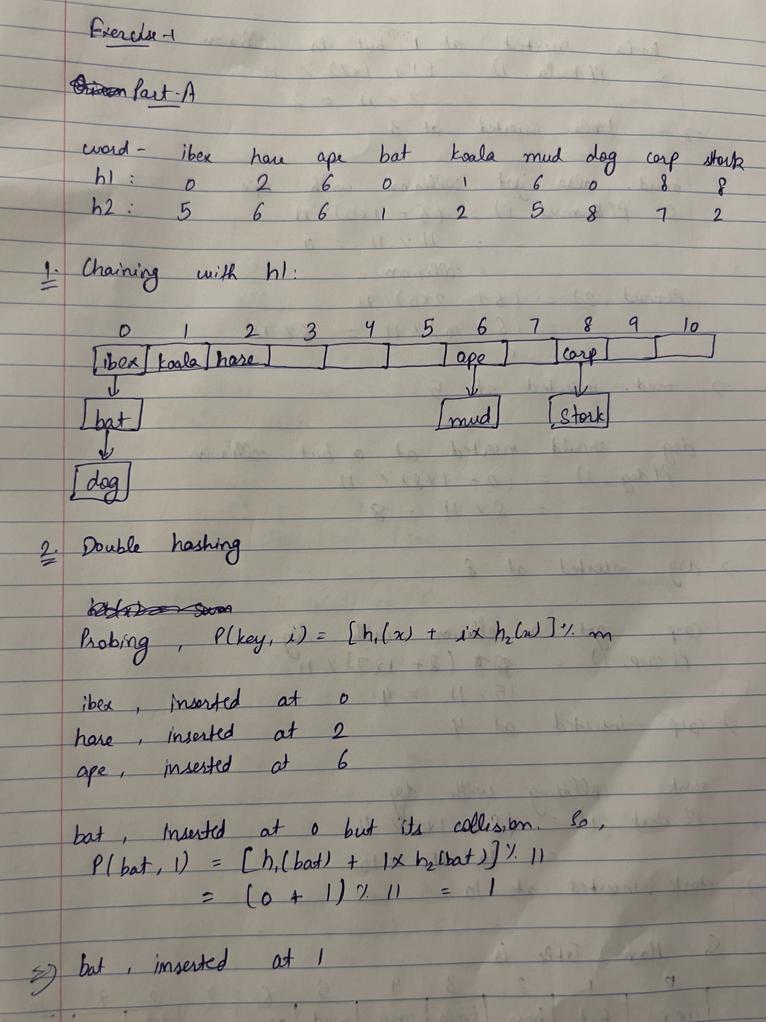 Exercise-1
Part-A
word - ibex hare ape bat koala mud dog carp stork
h1 : 0 2 6 0 1 6 0 8 8
h2 : 5 6 6 1 2 5 8 7 2
1. Chaining with h1:
0 1 2 3 4 5 6 7 8 9 10
ibex koala hare ape carp
bat mud stork
dog
2. Double hashing
Probing , P(key, i) = [h1(x) + i x h2(x)] % m
ibex , inserted at 0
hare , inserted at 2
ape , inserted at 6
bat , Inserted at 0 but its collision. So,
P(bat, 1) = [h1(bat) + 1x h2(bat)] % 11
= (0 + 1) % 11 = 1
=> bat , inserted at 1